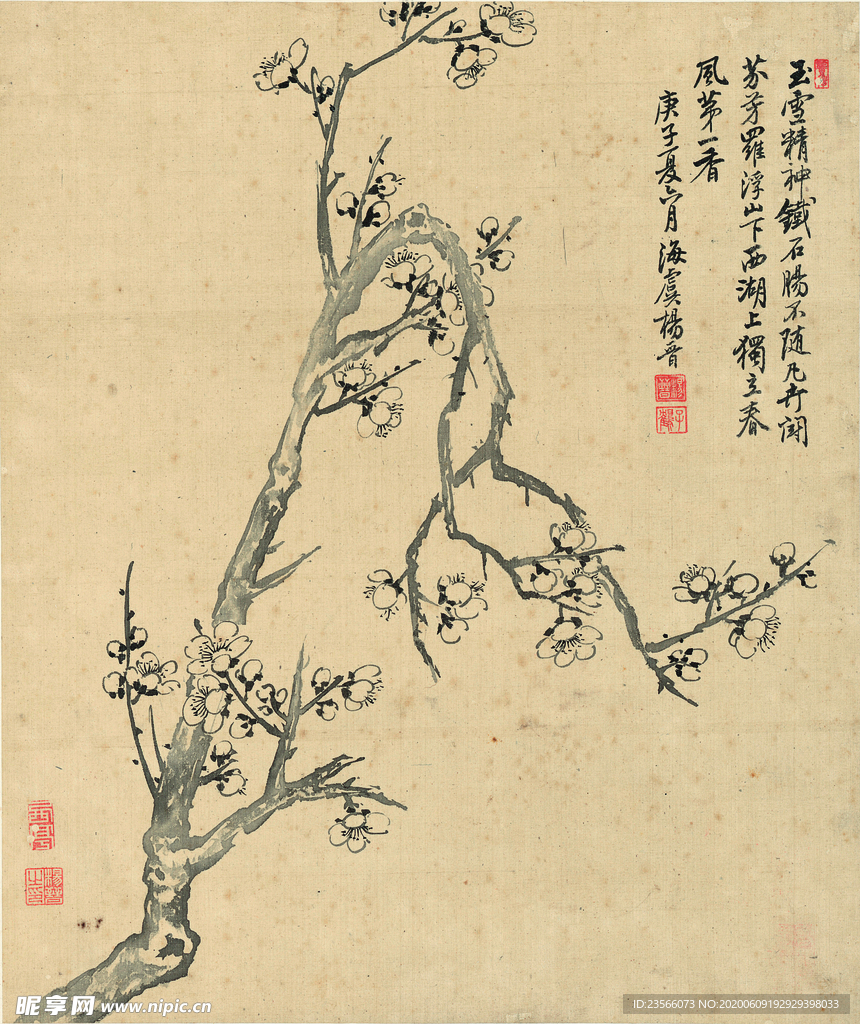 玉雪精神鐵石腸不随凡卉鬥
芬芳羅浮山下西湖上獨立春
風第一香
庚子夏六月海虞楊晉
昵享网 www.nipic.cn
ID:23566073 NO:20200609192929398033